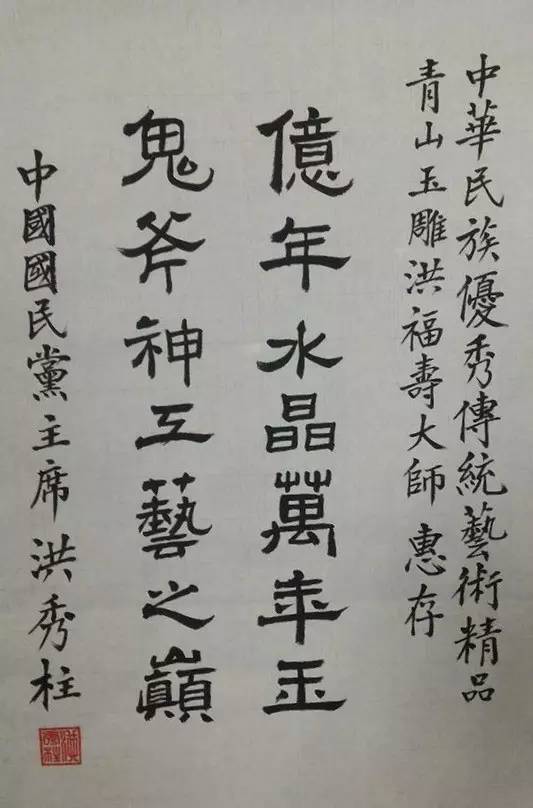 中華民族優秀傳統藝術精品
青山玉雕洪福壽大師 惠存
億年水晶萬年玉
鬼斧神工藝之巔
中國國民黨主席 洪秀柱